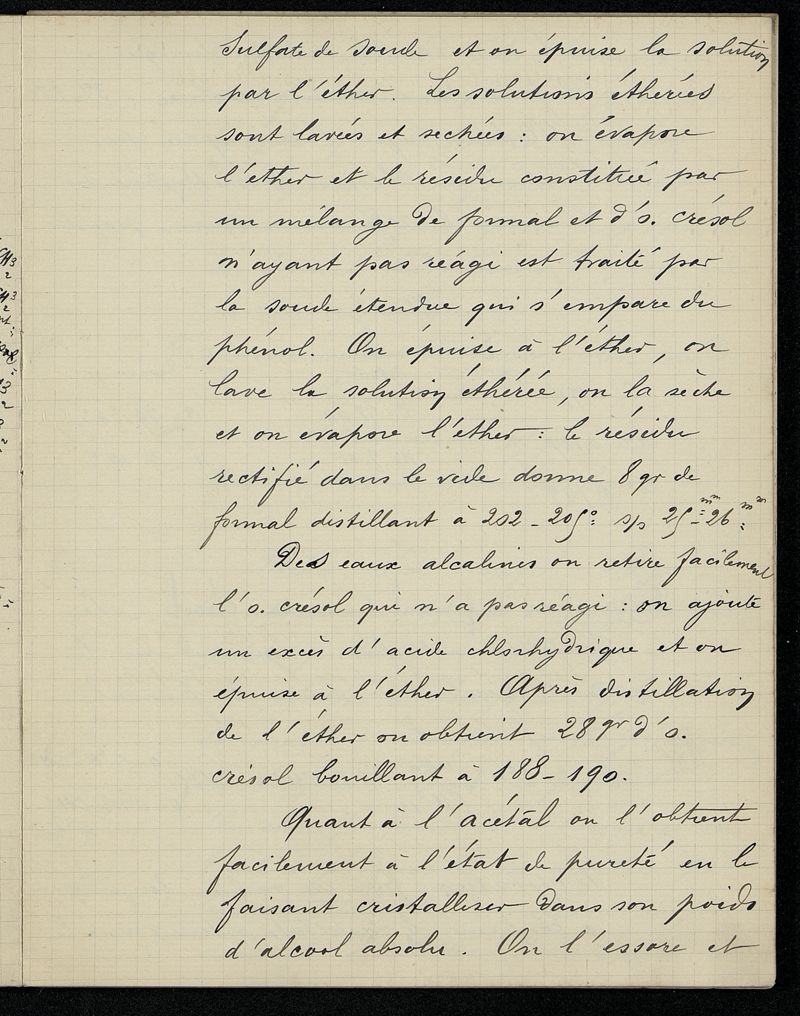 sulfate de soude et on épuise la solution
par l'éther. Les solutions éthérées
sont lavées et sechées : on évapore
l'ether et le résidu constitué par
un mélange de formal et d'o. crésol
n'ayant pas réagi est traité par
la soude étendue qui s'empare du
phénol. On épuise à l'éther, on
lave la solution éthérée, on la sèche
et on évapore l'éther : le résidu
rectifié dans le vide donne 8 gr de
formal distillant à 202-205° s/s 25mm-26mm
Des eaux alcalines on retire facilement
l'o. crésol qui n'a pas réagi : on ajoute
un excès d'acide chlorhydrique et on
épuise à l'éther. Après distillation
de l'éther on obtient 28 gr d'o.
crésol bouillant à 188-190.
Quant à l'acétal on l'obtient
facilement à l'état de pureté en le
faisant cristalliser dans son poids
d'alcool absolu. On l'essore et